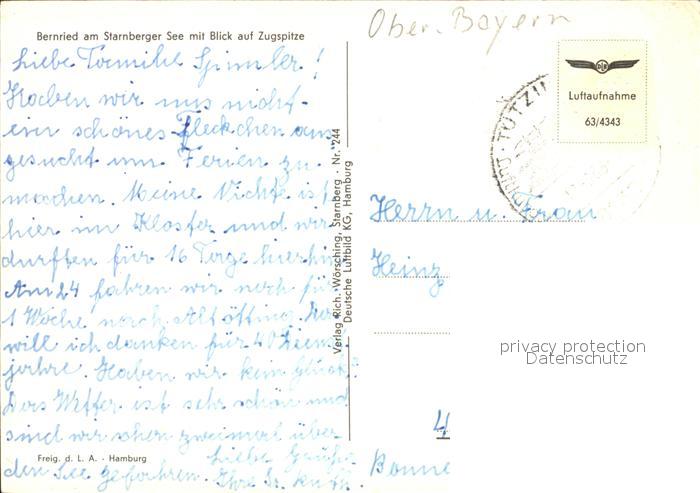 Ober-Bayern
Bernried am Starnberger See mit Blick auf Zugspitze
Liebe Familie Spindler!
Haben wir uns nicht
ein schönes Fleckchen aus
gesucht um Ferien zu
machen. Meine Nichte ist
hier im Kloster und wir
durften für 16 Tage hierhin
Am 24 fahren wir noch für
1 Woche nach Altötting. Da
will ich danken für 40
jahre. Haben wir kein Glück?
Das Wetter ist sehr schön und
sind wir schon zweimal über
den See gefahren. Liebe Grüße
Ihre Sr.
Freig. d. L. A. - Hamburg
Verlag Rich. Wörsching, Starnberg Nr. 244
Deutsche Luftbild KG, Hamburg
TUTZI
Luftaufnahme
63/4343
Herrn u. Frau
Heinz
privacy protection
Datenschutz
4
Bonne